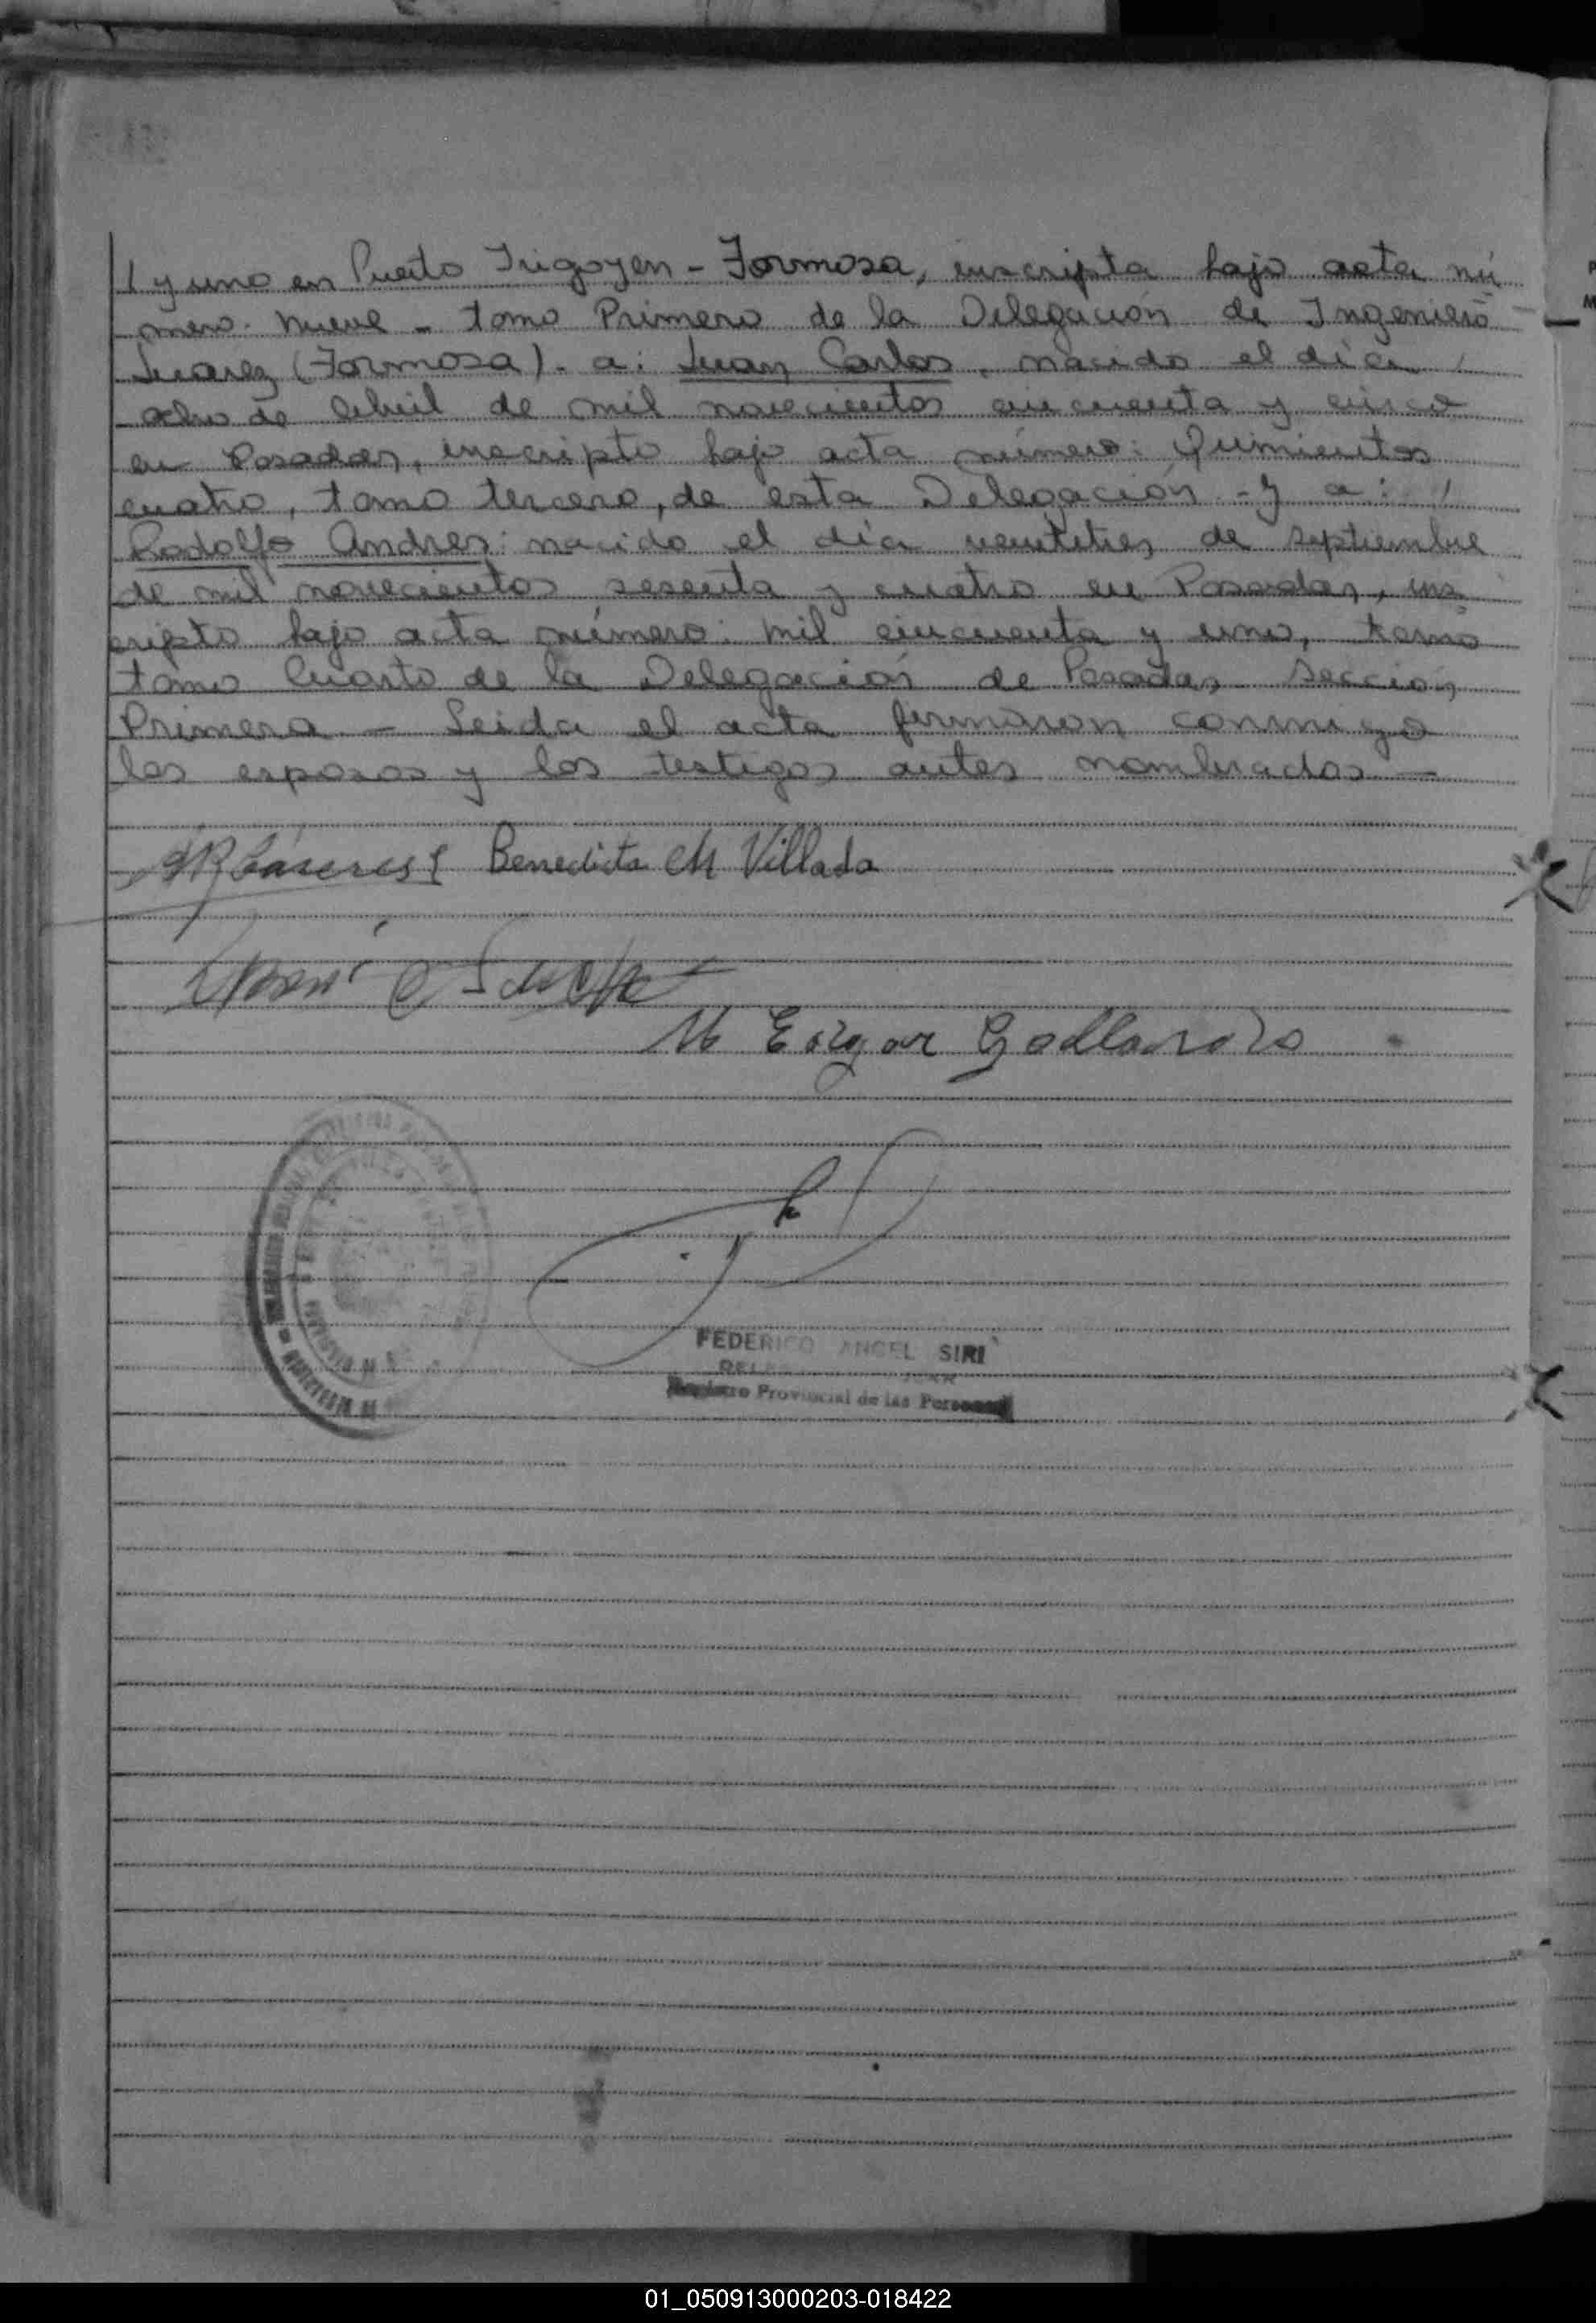 / y uno en Puerto Irigoyen - Formosa, inscripta bajo acta nú
mero nueve - tomo Primero de la Delegación de Ingeniero
Juarez (Formosa). a: Juan Carlos, nacido el día /
ocho de Abril de mil novecientos cincuenta y cinco
en Posadas, inscripto bajo acta número: Quinientos
cuatro, tomo tercero, de esta Delegación - y a: /
Rodolfo Andres: nacido el día veintitres de septiembre
de mil novecientos sesenta y cuatro en Posadas, ins
cripto bajo acta número: mil cincuenta y uno, tomo
tomo Cuarto de la Delegación de Posadas Sección
Primera - Leida el acta firmaron conmigo
los esposos y los testigos antes nombrados -
Benedicta M Villada
M Edgar Gallardo
FEDERICO ANGEL SIRI
Registro Provincial de las Personas
01_050913000203-018422